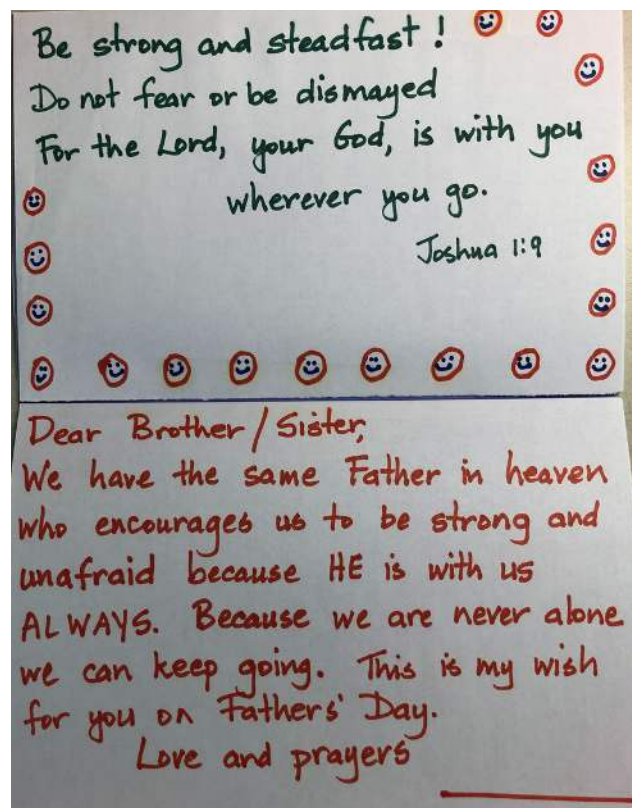 Be strong and steadfast!
Do not fear or be dismayed
For the Lord, your God, is with you
wherever you go.
Joshua 1:9
Dear Brother/Sister,
We have the same Father in heaven
who encourages us to be strong and
unafraid because HE is with us
ALWAYS. Because we are never alone
we can keep going. This is my wish
for you on Fathers' Day.
Love and prayers